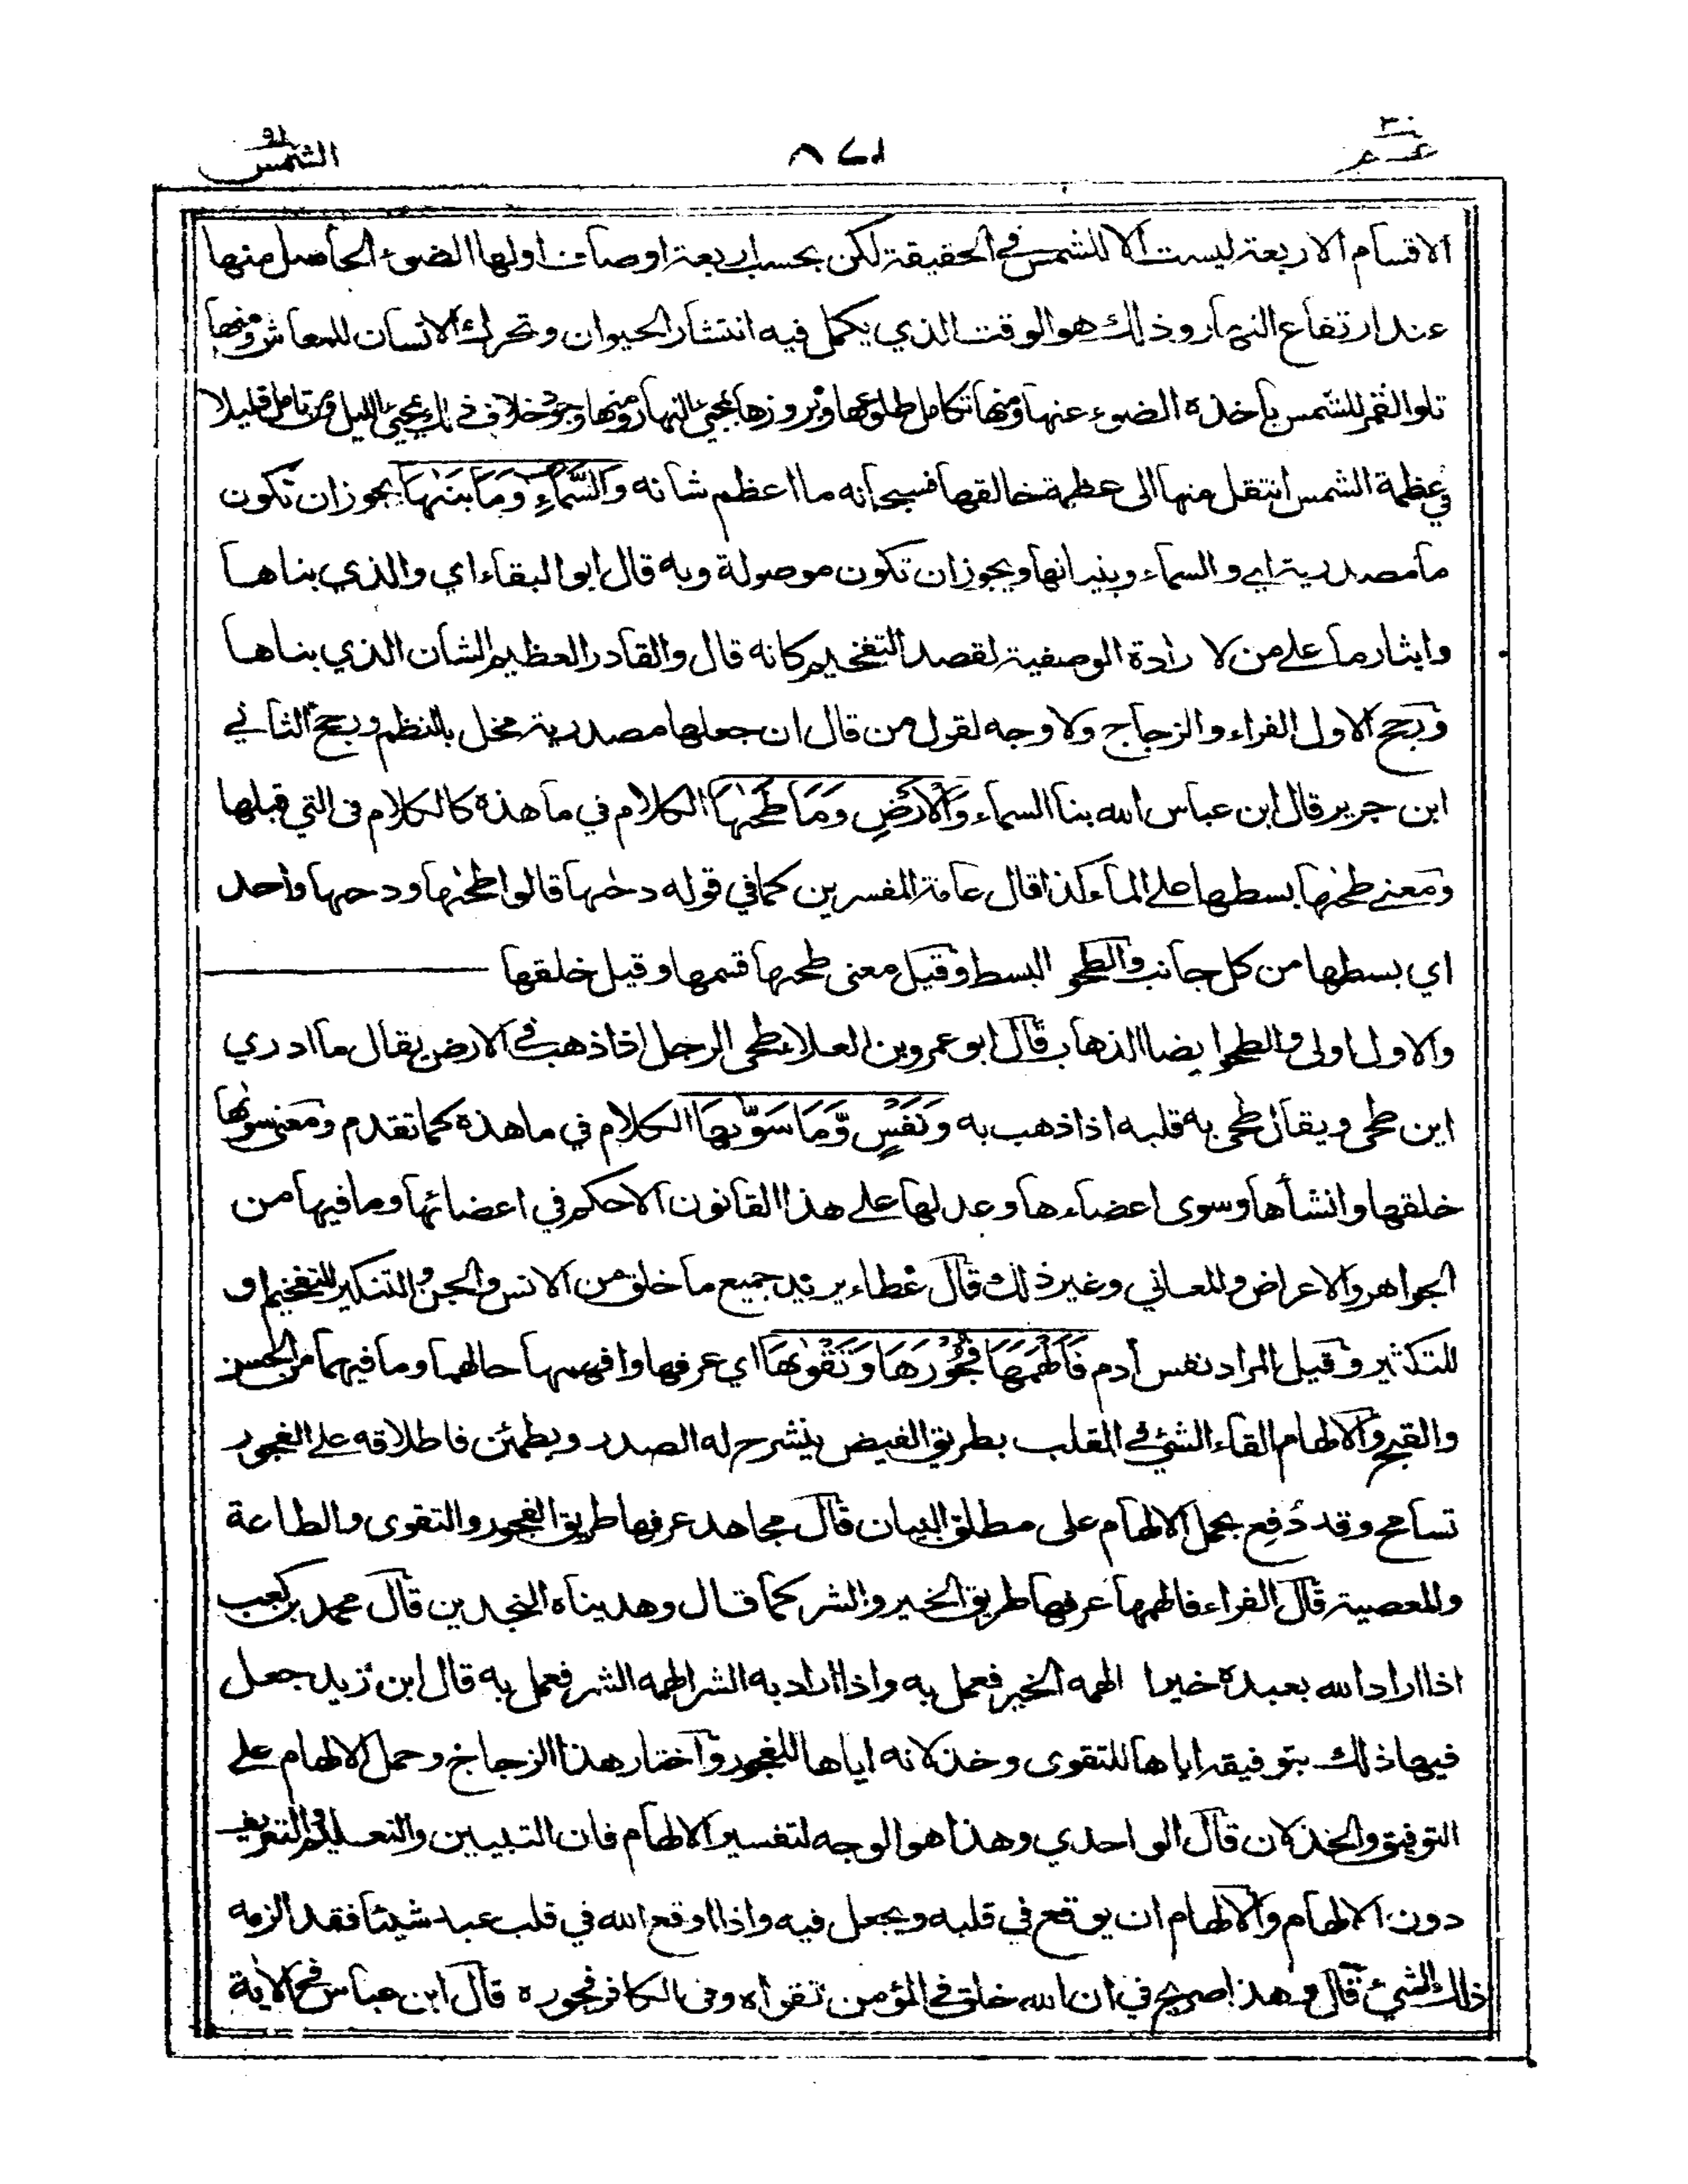 عم ٣٠
الشمس ٩١
الاقسام الاربعة ليست الا للشمس في الحقيقة لكن بحسب اربعة اوصاف اولها الضوء الحاصل منها
عند ارتفاع النهار وذلك هو الوقت الذي يكمل فيه انتشار الحيوان وتحرك الانسان للمعاش ومنها
تلو القمر للشمس بأخذه الضوء عنها ومنها تكامل طلوعها وبروزها بمجيء النهار ومنها وجود خلاف ذلك بمجيء الليل ومن تأمل قليلا
في عظمة الشمس انتقل منها الى عظمة خالقها فسبحانه ما اعظم شانه وَالسَّمَاءِ وَمَا بَنَىٰهَا يجوز ان تكون
ما مصدرية اي والسماء وبنيانها ويجوز ان تكون موصولة وبه قال ابو البقاء اي والذي بناها
وايثار ما على من لا رادة الوصفية لقصد التفخيم كانه قال والقادر العظيم الشان الذي بناها
ورجح الاول الفراء والزجاج ولا وجه لقول من قال ان جعلها مصدرية مخل بالنظم ورجح الثاني
ابن جرير قال ابن عباس الله بنا السماء وَالْاَرْضِ وَمَا طَحٰىهَا الكلام في ما هذه كالكلام في التي قبلها
ومعنى طحٰىها بسطها على الماء كذا قال عامة المفسرين كما في قوله دحٰىها قالوا طحٰىها ودحٰىها واحد
اي بسطها من كل جانب والطحو البسط وقيل معنى طحٰىها قسمها وقيل خلقها
والاول اولى والطحو ايضا الذهاب قال ابو عمرو بن العلاء طحى الرجل اذا ذهب في الارض يقال ما ادري
اين طحى ويقال طحى به قلبه اذا ذهب به وَنَفْسٍ وَّمَا سَوّٰىهَا الكلام في ما هذه كما تقدم ومعنى سوّٰىها
خلقها وانشأها وسوى اعضاءها وعدلها على هذا القانون الاحكم في اعضائها وما فيها من
الجواهر والاعراض والمعاني وغير ذلك قال عطاء يريد جميع ما خلق من الانس والجن والتنكير للتفخيم او
للتكثير وقيل المراد نفس آدم فَاَلْهَمَهَا فُجُوْرَهَا وَتَقْوٰىهَا اي عرفها وافهمها حالهما وما فيهما من الحسن
والقبح والالهام القاء الشيئ في القلب بطريق الفيض ينشرح له الصدر ويطمئن فاطلاقه على الفجور
تسامح وقد دُفِع بحمل الالهام على مطلق البيان قال مجاهد عرفها طريق الفجور والتقوى والطاعة
والمعصية قال الفراء فالهمها عرفها طريق الخير والشر كما قال وهديناه النجدين قال محمد بن كعب
اذا اراد الله بعبده خيرا الهمه الخير فعمل به واذا اراد به الشر الهمه الشر فعمل به قال ابن زيد جعل
فيها ذلك بتوفيقه اياها للتقوى وخذلانه اياها للفجور واختار هذا الزجاج وحمل الالهام على
التوفيق والخذلان قال الواحدي وهذا هو الوجه لتفسير الالهام فان التبيين والتعليم والتعريف
دون الالهام والالهام ان يوقع في قلبه ويجعل فيه واذا اوقع الله في قلب عبد شيئا فقد الزمه
ذلك الشيئ قال وهذا صريح في ان الله خلق في المؤمن تقواه وفي الكافر فجوره قال ابن عباس في الآية